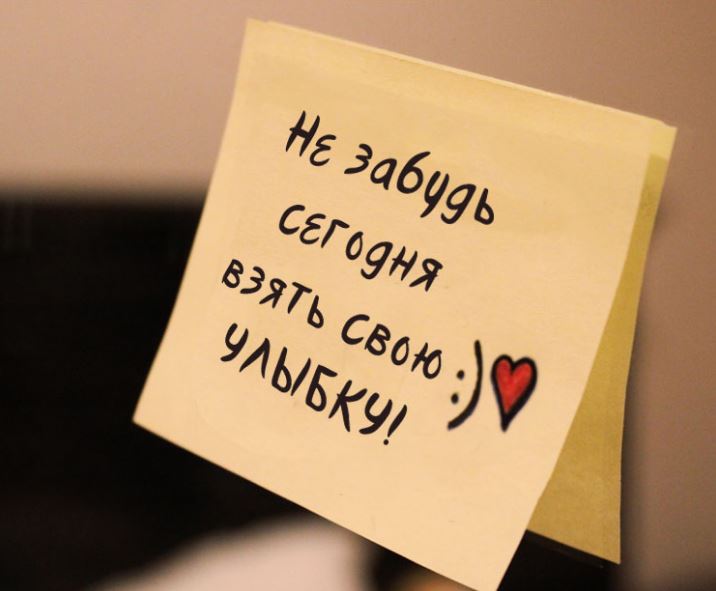 Не забудь
сегодня
взять свою
УЛЫБКУ! :)